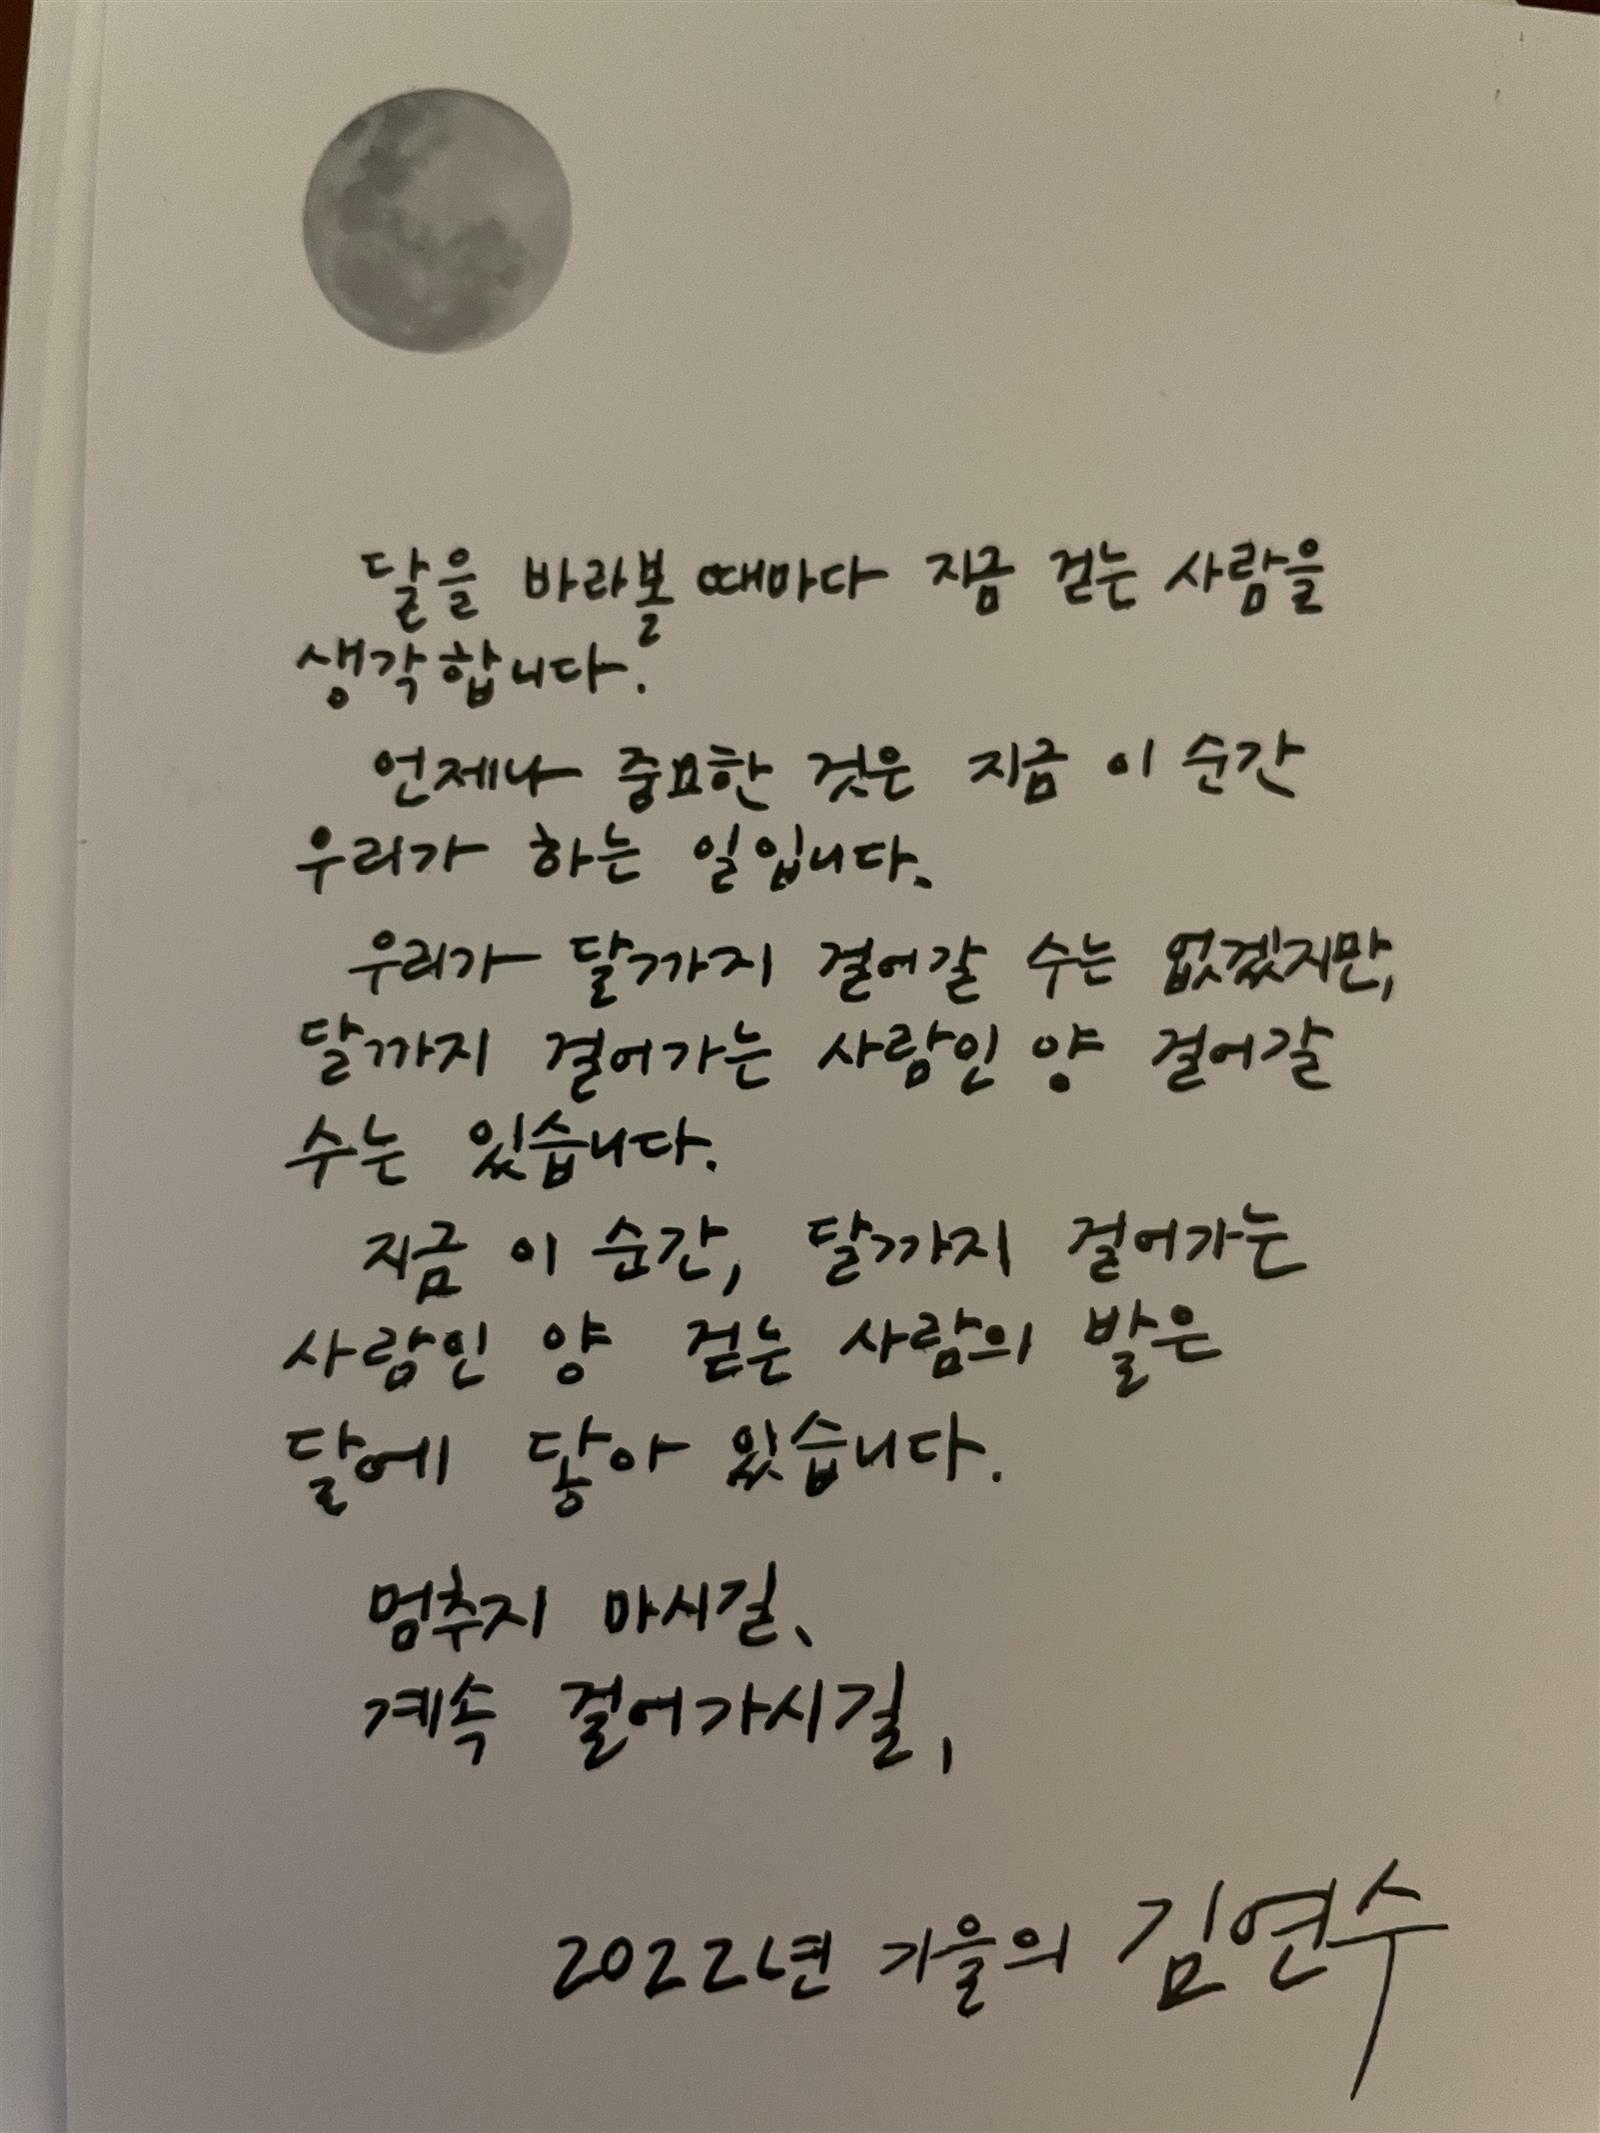 달을 바라볼 때마다 지금 걷는 사람을
생각합니다.
언제나 중요한 것은 지금 이 순간
우리가 하는 일입니다.
우리가 달까지 걸어갈 수는 없겠지만,
달까지 걸어가는 사람인 양 걸어갈
수는 있습니다.
지금 이 순간, 달까지 걸어가는
사람인 양 걷는 사람의 발은
달에 닿아 있습니다.
멈추지 마시길,
계속 걸어가시길,
2022년 가을의 김연수